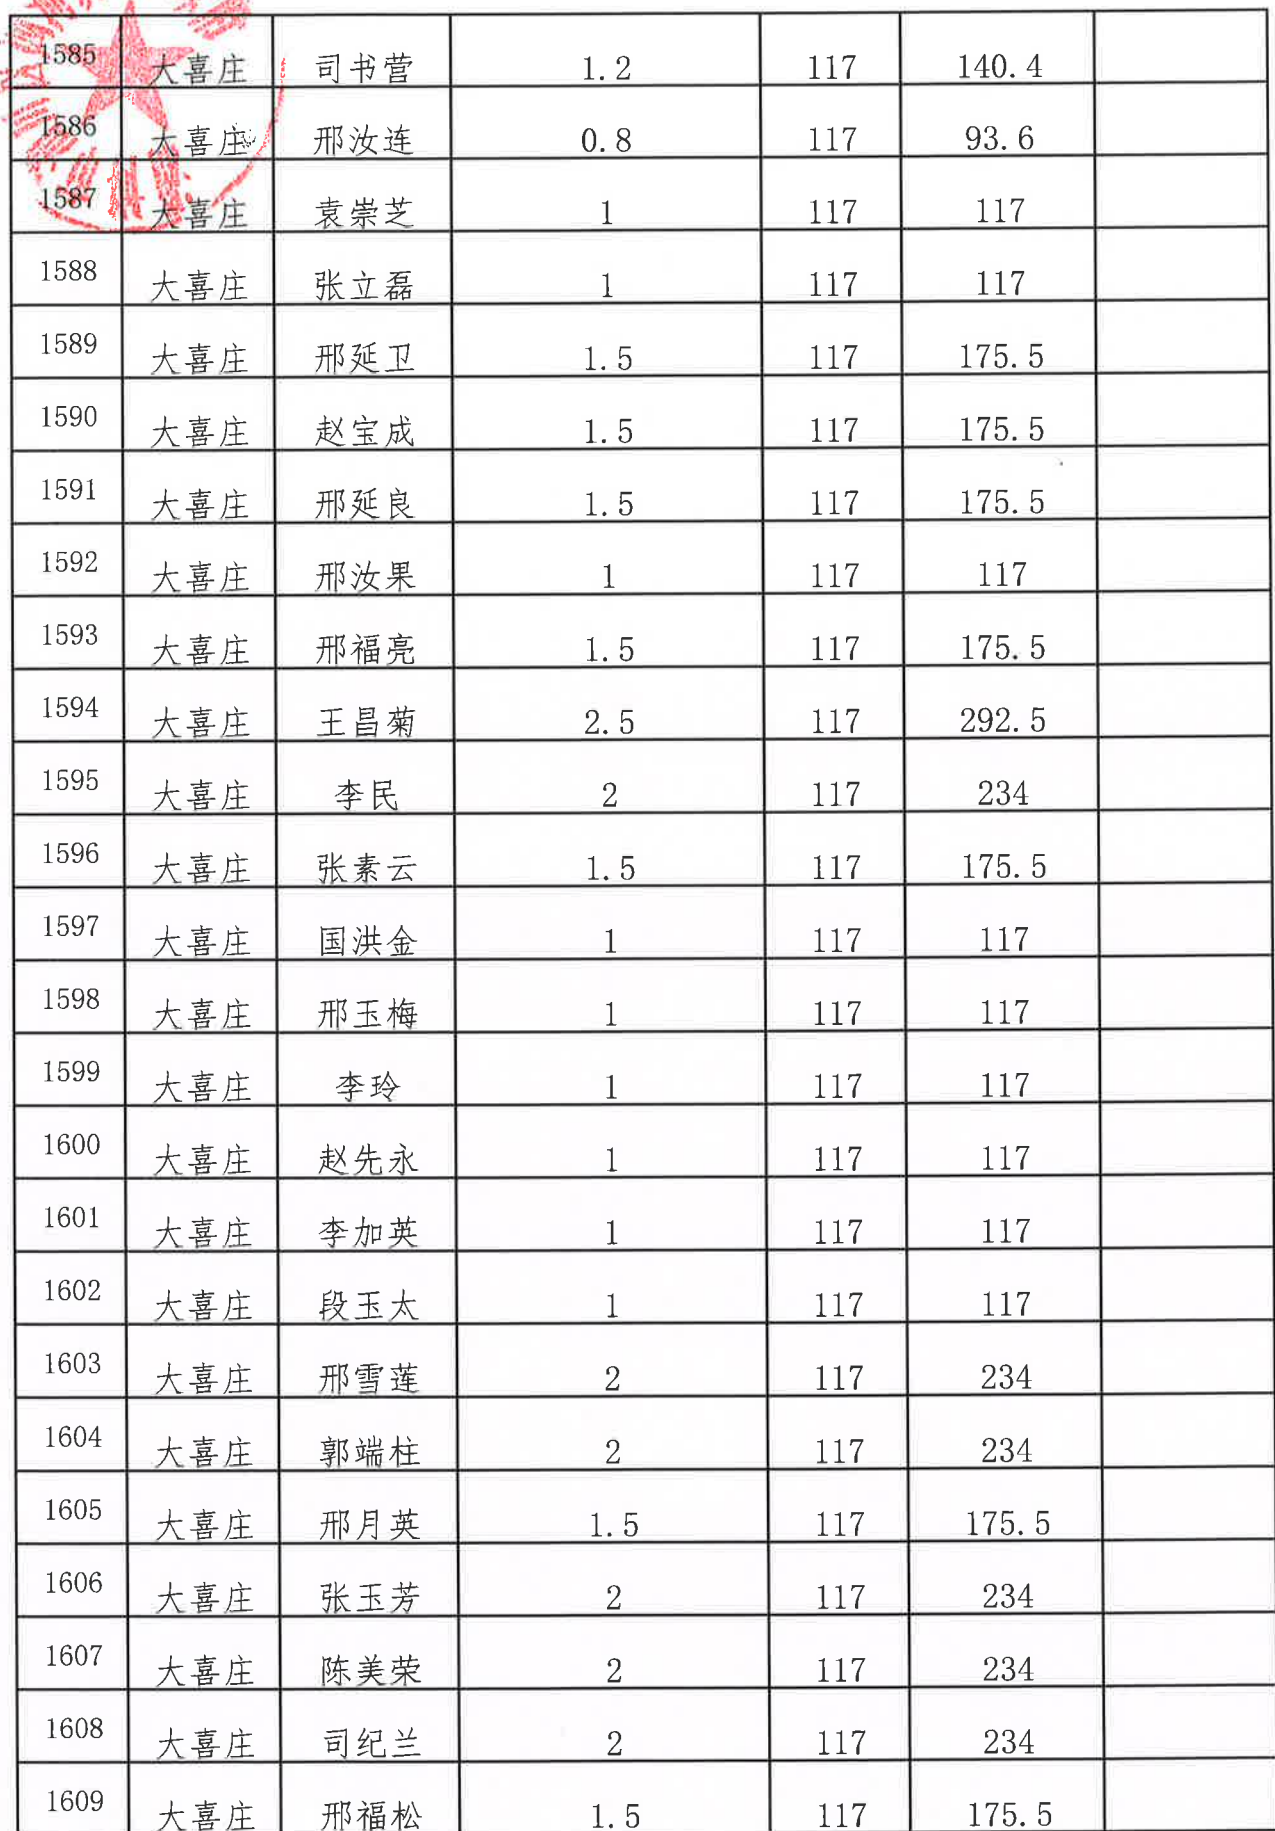 1585 大喜庄 司书营 1.2 117 140.4
1586 大喜庄 邢汝连 0.8 117 93.6
1587 大喜庄 袁崇芝 1 117 117
1588 大喜庄 张立磊 1 117 117
1589 大喜庄 邢延卫 1.5 117 175.5
1590 大喜庄 赵宝成 1.5 117 175.5
1591 大喜庄 邢延良 1.5 117 175.5
1592 大喜庄 邢汝果 1 117 117
1593 大喜庄 邢福亮 1.5 117 175.5
1594 大喜庄 王昌菊 2.5 117 292.5
1595 大喜庄 李民 2 117 234
1596 大喜庄 张素云 1.5 117 175.5
1597 大喜庄 国洪金 1 117 117
1598 大喜庄 邢玉梅 1 117 117
1599 大喜庄 李玲 1 117 117
1600 大喜庄 赵先永 1 117 117
1601 大喜庄 李加英 1 117 117
1602 大喜庄 段玉太 1 117 117
1603 大喜庄 邢雪莲 2 117 234
1604 大喜庄 郭端柱 2 117 234
1605 大喜庄 邢月英 1.5 117 175.5
1606 大喜庄 张玉芳 2 117 234
1607 大喜庄 陈美荣 2 117 234
1608 大喜庄 司纪兰 2 117 234
1609 大喜庄 邢福松 1.5 117 175.5